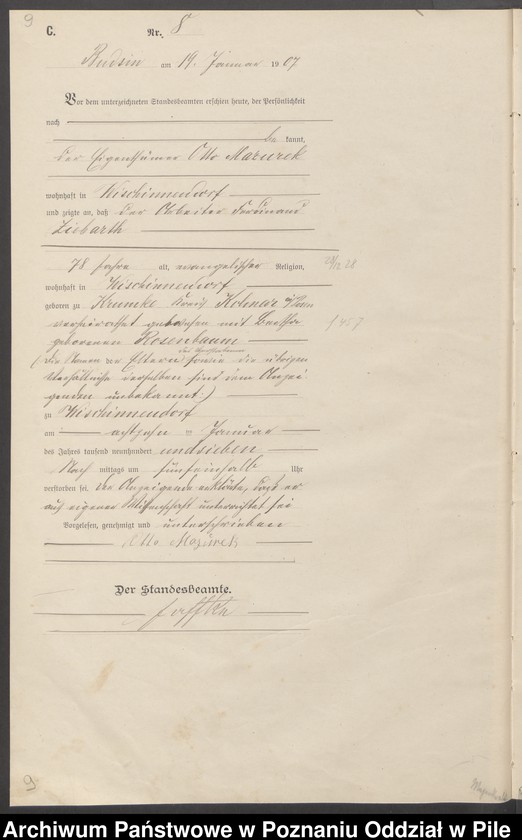 9
C.
Nr. 8
Rudsin am 19. Januar 1907
Vor dem unterzeichneten Standesbeamten erschien heute, der Persönlichkeit
nach
be kannt,
der Eigenthümer Otto Mazurek
wohnhaft in Wischinnendorf
und zeigte an, daß der Arbeiter Ferdinand
Liebarth
78 Jahre alt, evangelischer Religion,
wohnhaft in Wischinnendorf
geboren zu Krumke Kreis Kolmar
verheirathet gewesen mit
geborenen Rosenbaum
(die Namen der Eltern des Verstorbenen sowie die übrigen
Verhältnisse derselben sind dem Anzei-
genden unbekannt.)
zu Wischinnendorf
am achtzehn ten Januar
des Jahres tausend neunhundert und sieben
Nach mittags um fünfeinhalb Uhr
verstorben sei. Der Anzeigende erklärte, daß er
aus eigener Wissenschaft unterrichtet sei
Vorgelesen, genehmigt und unterschrieben
Otto Mazurek
Der Standesbeamte.
9
Archiwum Państwowe w Poznaniu Oddział w Pile